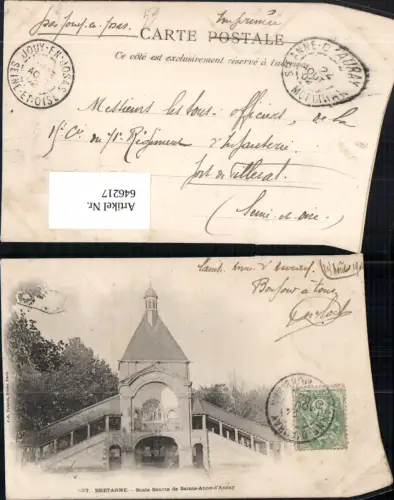 par Jouy-en-Josas
Imprimée
CARTE POSTALE
Ce côté est exclusivement réservé à l'adresse
JOUY-EN-JOSAS
SEINE-ET-OISE
STE ANNE-D'AURAY
MORBIHAN
Messieurs les sous-officiers, de la
15e Cie du 71e Régiment d'Infanterie
fort de Villeras
(Seine et oise)
Artikel Nr.
646217
Sainte Anne d'Auray
Bonjour à tous
BRETAGNE. - Scala Sancta de Sainte-Anne-d'Auray